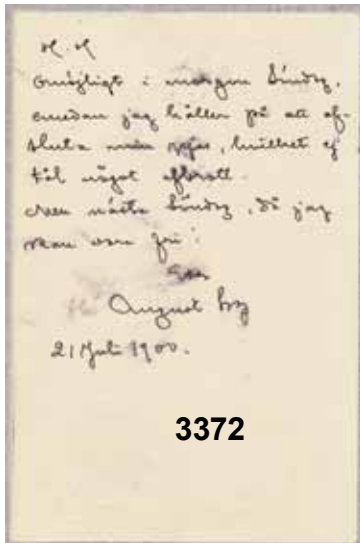 H. H
Omöjligt i morgon Söndag,
emedan jag håller på att af-
sluta min pjes, hvilket ej
tål något afbrott.
Men nästa Söndag, då jag
skall vara fri!
August Sbg
21 Juli 1900.
3372